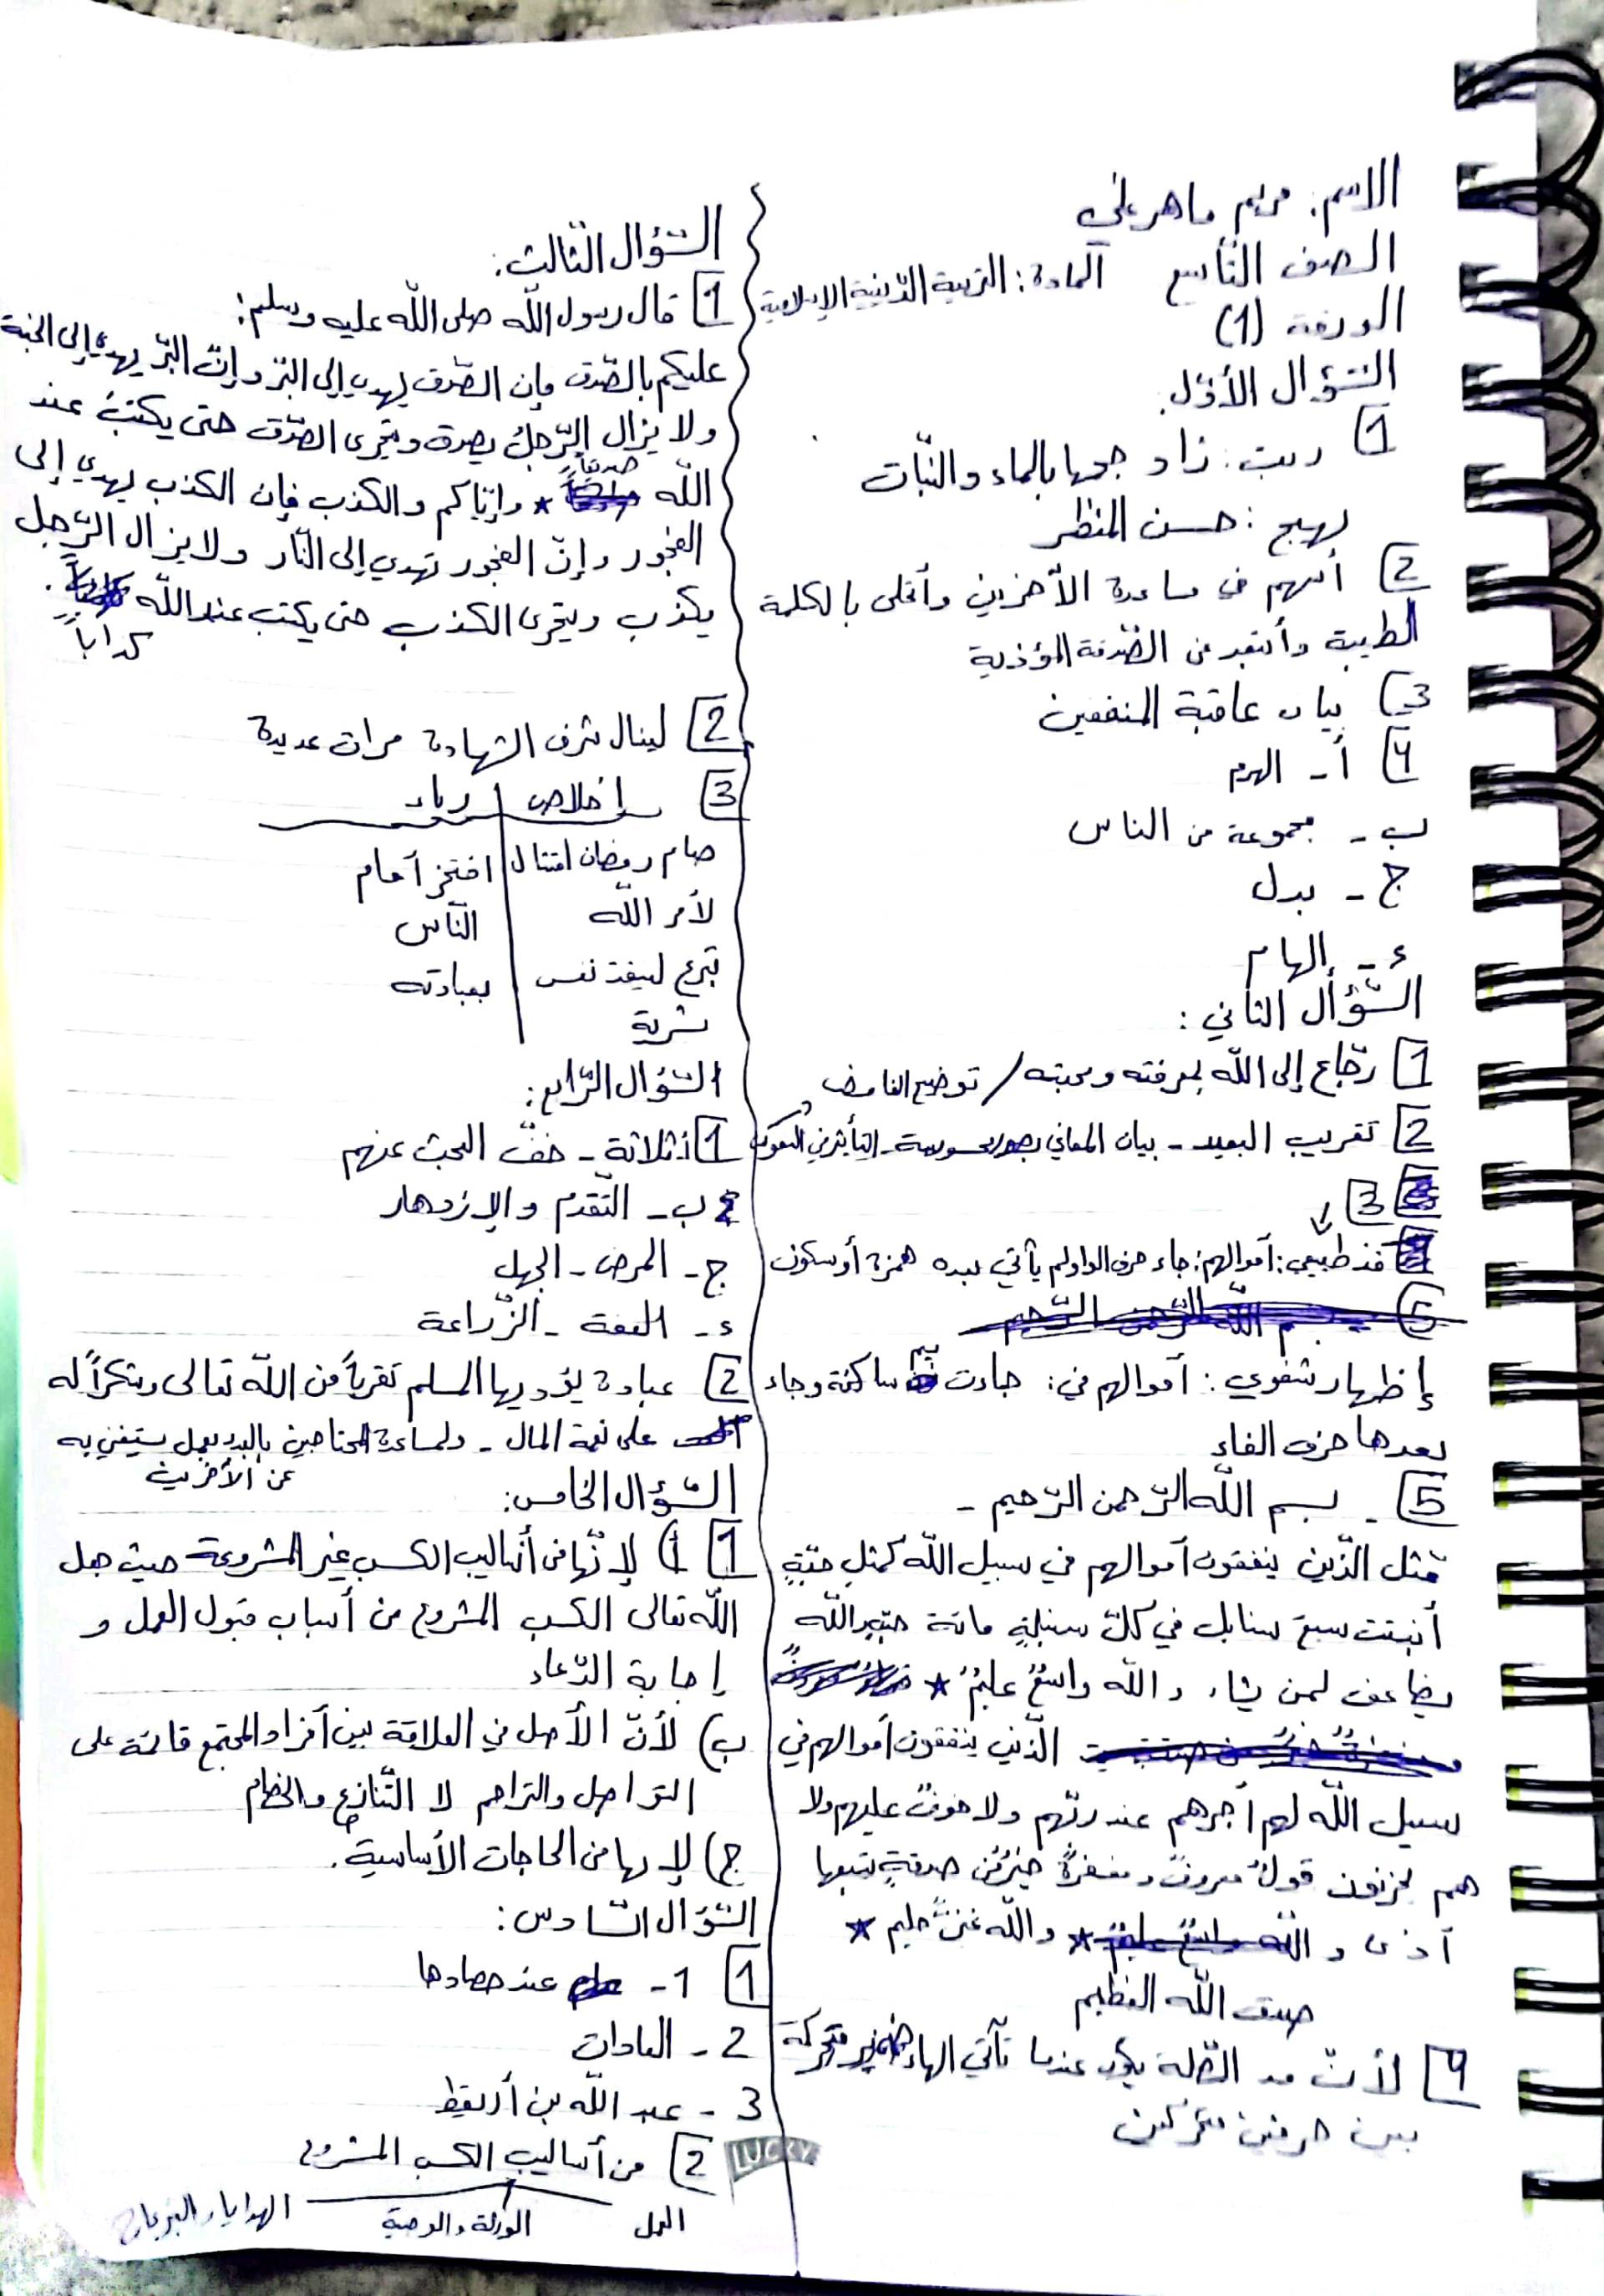 الاسم: مريم ماهر علي
الصف التاسع المادة: التربية الدّينية الإسلامية
الورقة (1)
السّؤال الأوّل:
1 ربت: زاد حجمها بالماء والنّبات
بهيج: حسن المنظر
2 أسهم في مساعدة الآخرين وأتحلى بالكلمة
الطيبة وأبتعد عن الصّدقة المؤذية
3 بيان عاقبة المنفقين
4 أ - الهرم
ب - مجموعة من الناس
ج - بدل
ء - إلهام
السّؤال الثاني:
1 رجّاع إلى الله بمعرفته ومحبته / توضيح الغامض
2 تقريب البعيد - بيان المعاني بصور محسوسة - التأثير في
3
مد طبيعي: أموالهم: جاء حرف الواو لم يأتي بعده همزة أو سكون
5 - بسم الله الرّحمن الرّحيم
إظهار شفوي: أموالهم في: جاءت ميم ساكنة وجاء
بعدها حرف الفاء
5 - بسم الله الرّحمن الرّحيم -
مثل الّذين ينفقون أموالهم في سبيل الله كمثل حبّةٍ
أنبتت سبع سنابل في كلّ سنبلةٍ مائة حبّةٍ والله
يضاعف لمن يشاء والله واسعٌ عليمٌ *
الّذين ينفقون أموالهم في
سبيل الله لهم أجرهم عند ربّهم ولا خوفٌ عليهم ولا
هم يحزنون قولٌ معروفٌ ومغفرةٌ خيرٌ من صدقةٍ يتبعها
أذى والله واسعٌ عليمٌ * والله غنيٌّ حليم *
صدق الله العظيم
4 لأنّ مد الصّلة يكون عندما تأتي الهاء ضمير متحركة
بين حرفين متحركين
السّؤال الثّالث:
1 قال رسول الله صلى الله عليه وسلم:
عليكم بالصّدق فإن الصّدق يهدي إلى البرّ وإنّ البرّ يهدي إلى الجنة
ولا يزال الرّجلُ يصدق ويتحرى الصّدق حتى يكتبَ عند
الله صديقاً * وإيّاكم والكذب فإن الكذب يهدي إلى
الفجور وإنّ الفجور تهدي إلى النّار ولا يزال الرّجل
يكذب ويتحرى الكذب حتى يكتب عند الله
كذاباً
2 لينال شرف الشهادة مرات عديدة
3 إخلاص رياء
صام رمضان امتثال افتخر أمام
لأمر الله النّاس
تبرع لينقذ نفس بعبادته
بشرية
السّؤال الرّابع:
1 أ: ثلاثة - خفّ البحث عنهم
ب - التّقدم والإزدهار
ج - المرض - الجهل
ء - العفة - الزّراعة
2 عبادة يؤديها المسلم تقرباً من الله تعالى وشكراً له
على نعمة المال - ولمساعدة المحتاجين بالبدء بعمل يستغني به
عن الأخرين
السّؤال الخامس:
1 أ) لإنّها من أساليب الكسب غير المشروعة حيث جعل
الله تعالى الكسب المشروع من أسباب قبول العمل و
إجابة الدّعاء
ب) لأنّ الأصل في العلاقة بين أفراد المجتمع قائمة على
التواصل والتراحم لا التّنازع والخصام
ج) لإنها من الحاجات الأساسية.
السّؤال السّادس:
1 1- عند حصادها
2 - العادات
3 - عبد الله بن أريقط
2 من أساليب الكسب المشروع
العمل الورثة والوصية الهدايا والتبرعات
LUCKY